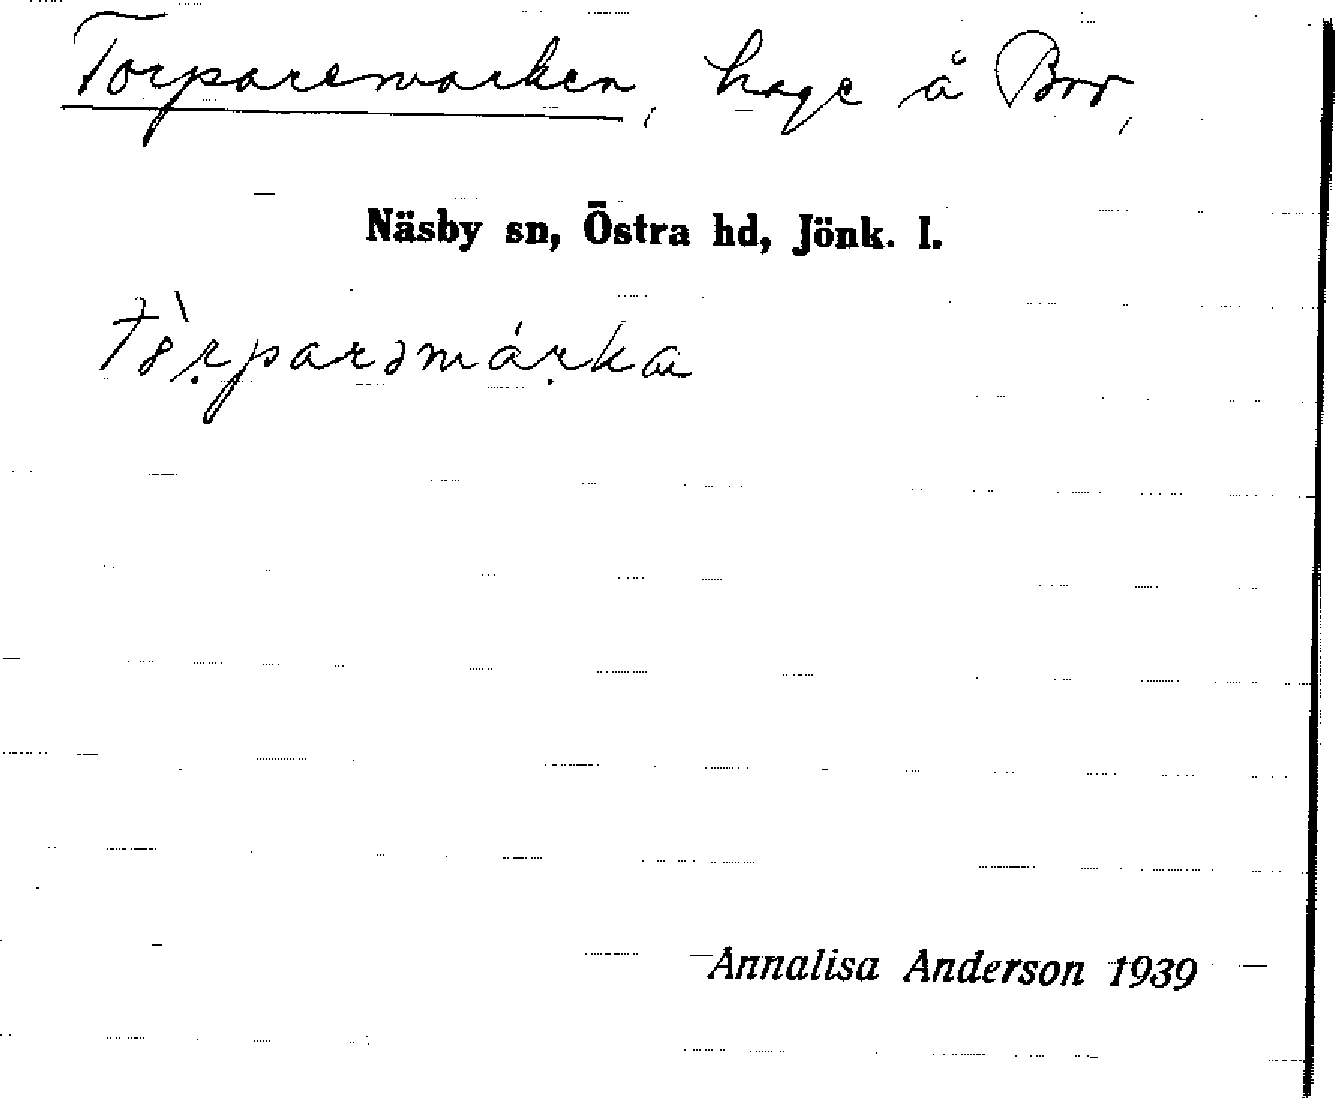 Torparemarken, hage å Bro,
Näsby sn, Östra hd, Jönk. l.
Annalisa Anderson 1939